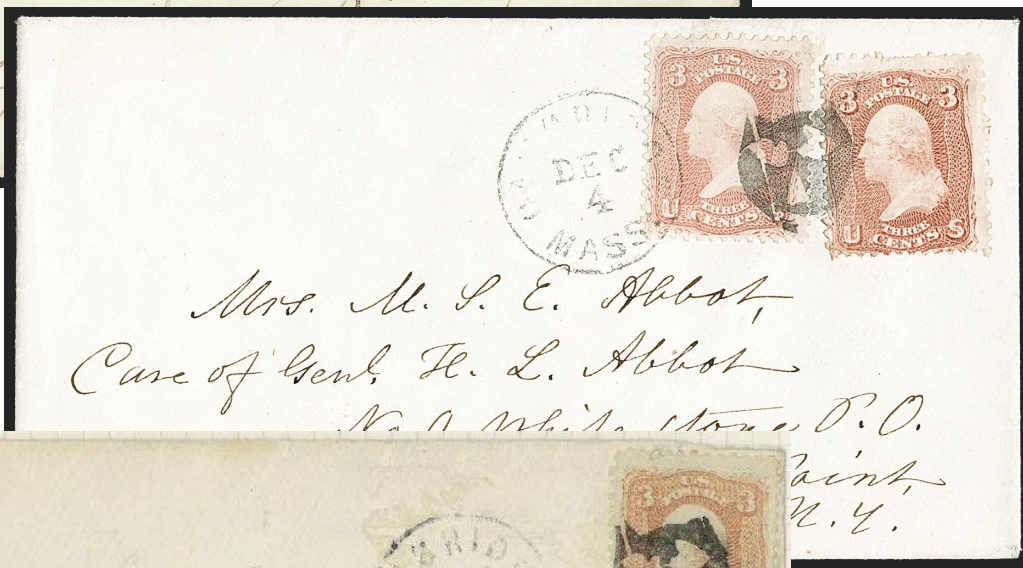 3 U.S. 3
POSTAGE
THREE
U CENTS
3 U.S. 3
POSTAGE
THREE
U CENTS S
DEC
4
MASS.
Mrs. M. S. E. Abbot,
Care of Genl. H. L. Abbot
White stone P.O.
Point,
N. Y.
BRID
3 U.S. 3
POSTAGE